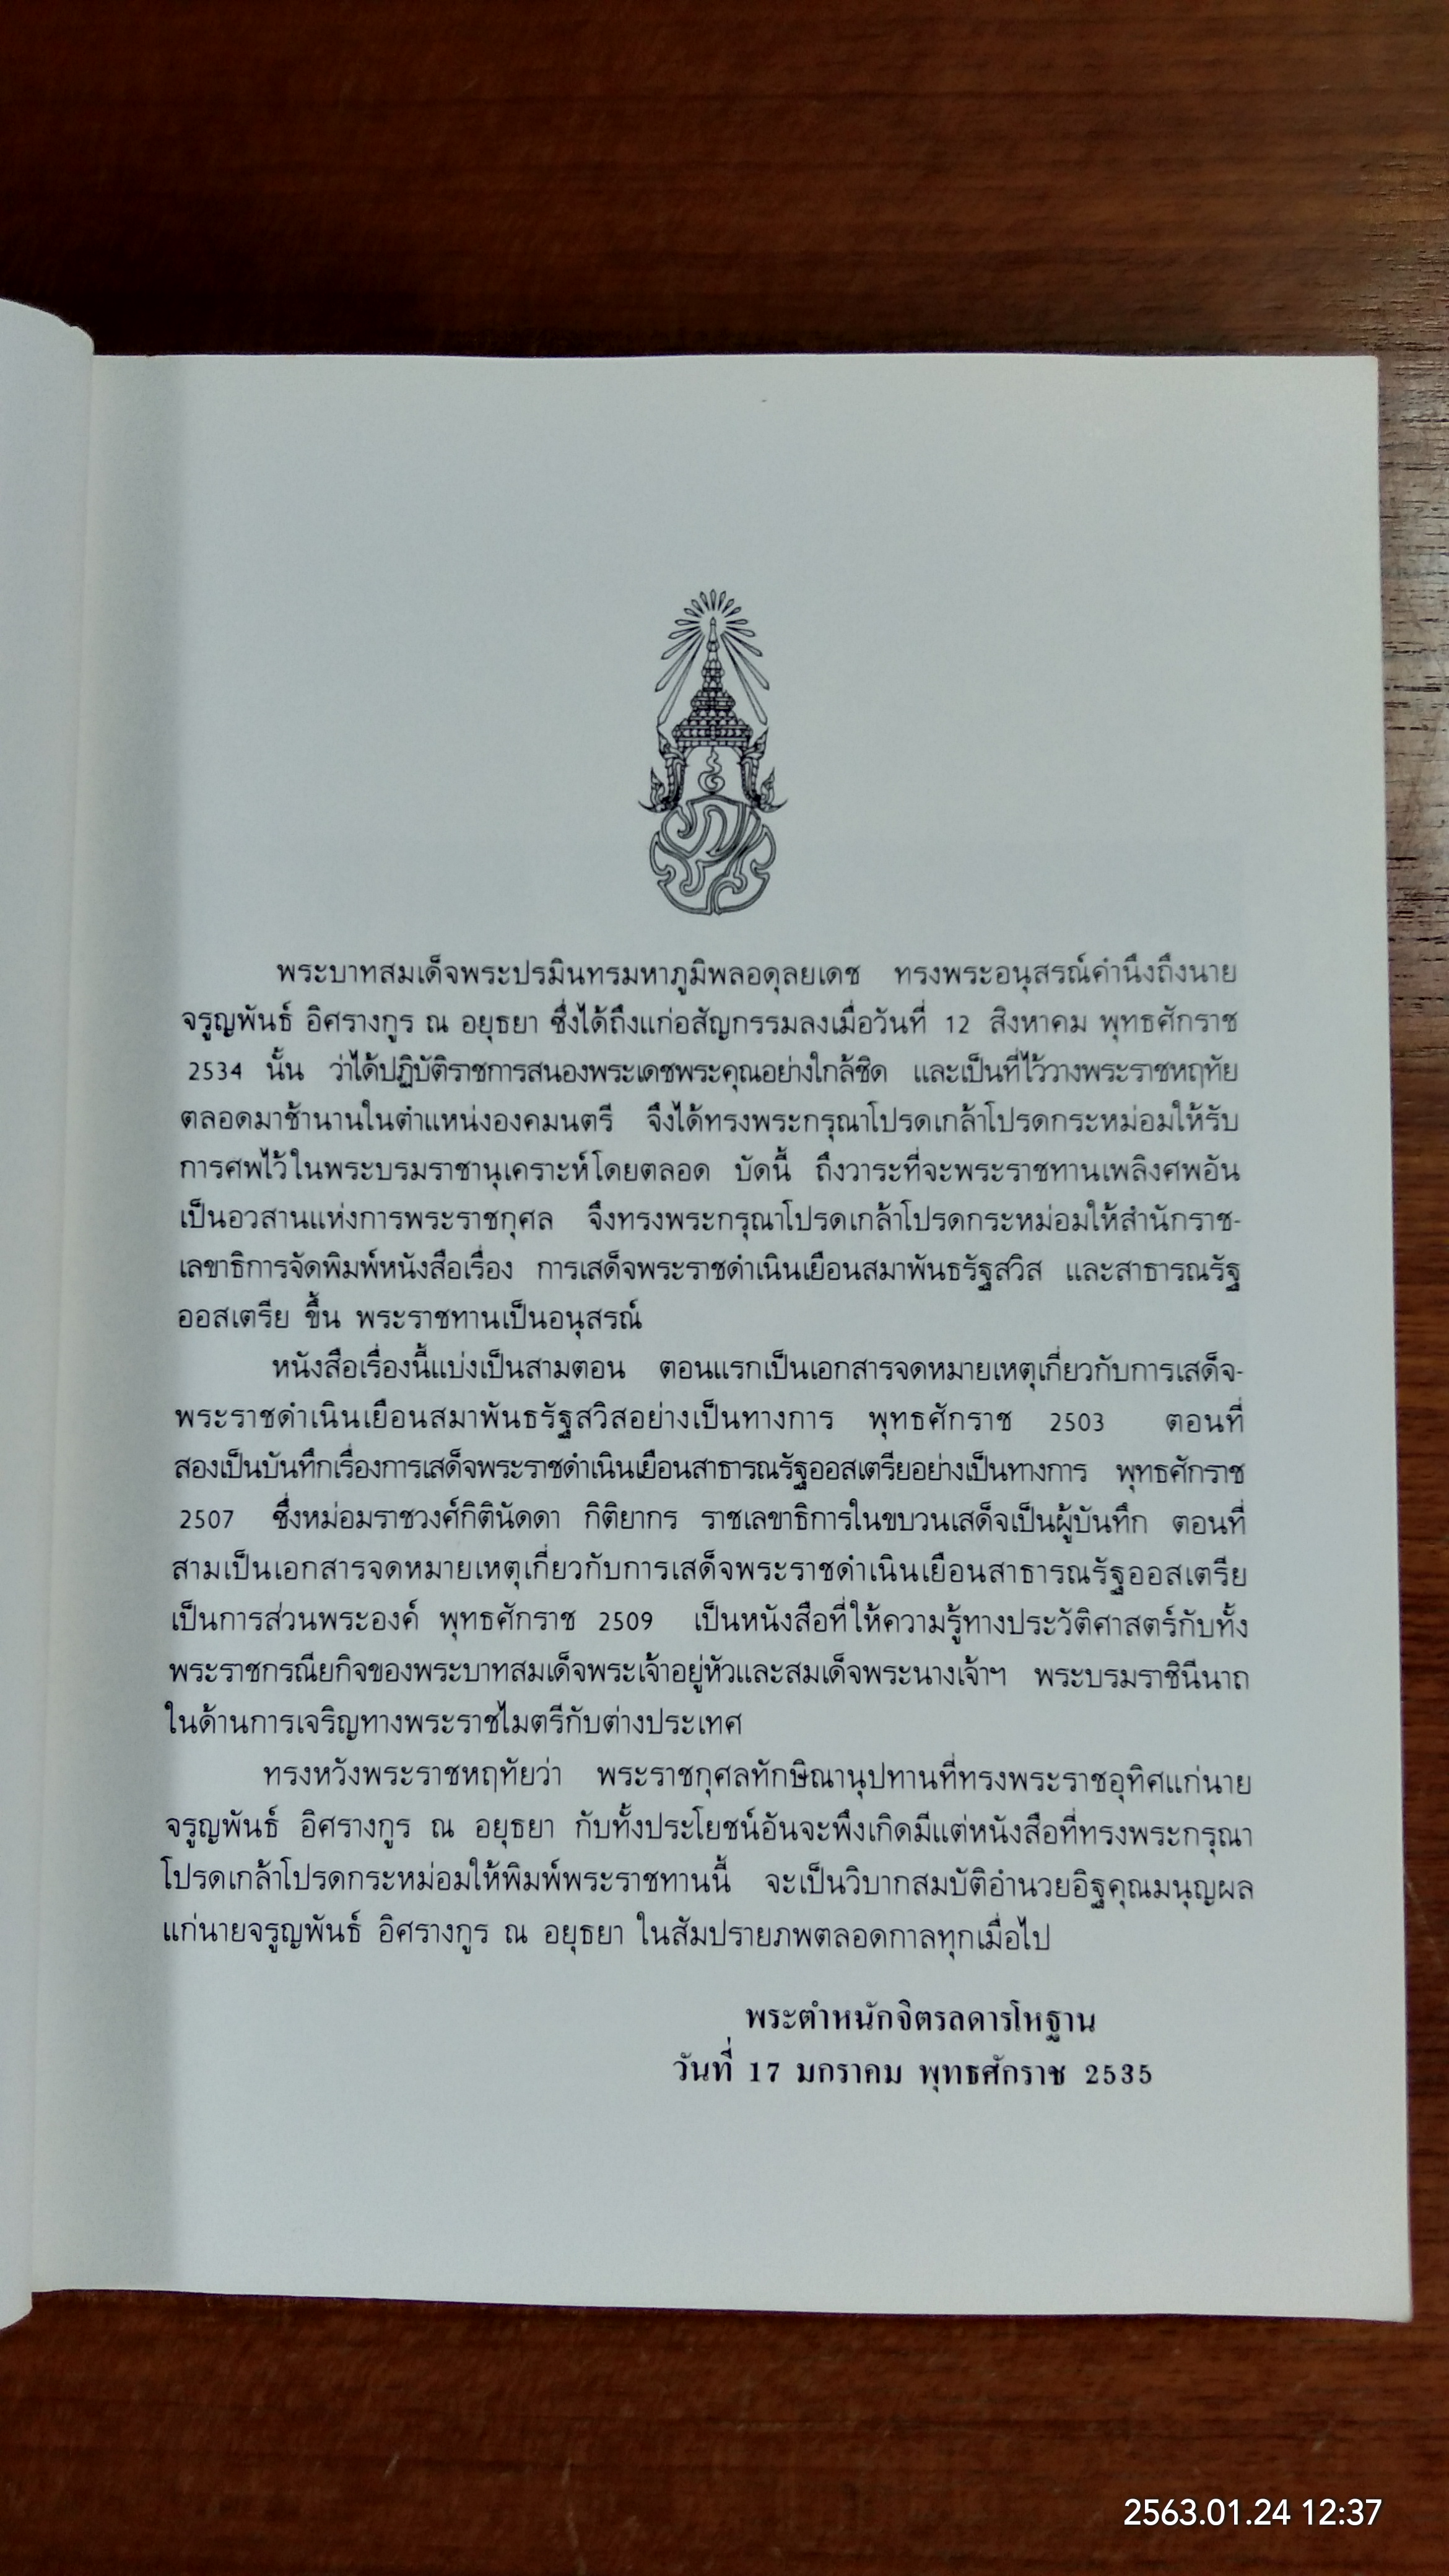 พระบาทสมเด็จพระปรมินทรมหาภูมิพลอดุลยเดช ทรงพระอนุสรณ์คำนึงถึงนาย
จรูญพันธ์ อิศรางกูร ณ อยุธยา ซึ่งได้ถึงแก่อสัญกรรมลงเมื่อวันที่ 12 สิงหาคม พุทธศักราช
2534 นั้น ว่าได้ปฏิบัติราชการสนองพระเดชพระคุณอย่างใกล้ชิด และเป็นที่ไว้วางพระราชหฤทัย
ตลอดมาช้านานในตำแหน่งองคมนตรี จึงได้ทรงพระกรุณาโปรดเกล้าโปรดกระหม่อมให้รับ
การศพไว้ในพระบรมราชานุเคราะห์โดยตลอด บัดนี้ ถึงวาระที่จะพระราชทานเพลิงศพอัน
เป็นอวสานแห่งการพระราชกุศล จึงทรงพระกรุณาโปรดเกล้าโปรดกระหม่อมให้สำนักราช-
เลขาธิการจัดพิมพ์หนังสือเรื่อง การเสด็จพระราชดำเนินเยือนสมาพันธรัฐสวิส และสาธารณรัฐ
ออสเตรีย ขึ้น พระราชทานเป็นอนุสรณ์
หนังสือเรื่องนี้แบ่งเป็นสามตอน ตอนแรกเป็นเอกสารจดหมายเหตุเกี่ยวกับการเสด็จ-
พระราชดำเนินเยือนสมาพันธรัฐสวิสอย่างเป็นทางการ พุทธศักราช 2503 ตอนที่
สองเป็นบันทึกเรื่องการเสด็จพระราชดำเนินเยือนสาธารณรัฐออสเตรียอย่างเป็นทางการ พุทธศักราช
2507 ซึ่งหม่อมราชวงศ์กิตินัดดา กิติยากร ราชเลขาธิการในขบวนเสด็จเป็นผู้บันทึก ตอนที่
สามเป็นเอกสารจดหมายเหตุเกี่ยวกับการเสด็จพระราชดำเนินเยือนสาธารณรัฐออสเตรีย
เป็นการส่วนพระองค์ พุทธศักราช 2509 เป็นหนังสือที่ให้ความรู้ทางประวัติศาสตร์กับทั้ง
พระราชกรณียกิจของพระบาทสมเด็จพระเจ้าอยู่หัวและสมเด็จพระนางเจ้าฯ พระบรมราชินีนาถ
ในด้านการเจริญทางพระราชไมตรีกับต่างประเทศ
ทรงหวังพระราชหฤทัยว่า พระราชกุศลทักษิณานุปทานที่ทรงพระราชอุทิศแก่นาย
จรูญพันธ์ อิศรางกูร ณ อยุธยา กับทั้งประโยชน์อันจะพึงเกิดมีแต่หนังสือที่ทรงพระกรุณา
โปรดเกล้าโปรดกระหม่อมให้พิมพ์พระราชทานนี้ จะเป็นวิบากสมบัติอำนวยอิฐคุณมนุญผล
แก่นายจรูญพันธ์ อิศรางกูร ณ อยุธยา ในสัมปรายภพตลอดกาลทุกเมื่อไป
พระตำหนักจิตรลดารโหฐาน
วันที่ 17 มกราคม พุทธศักราช 2535
2563.01.24 12:37